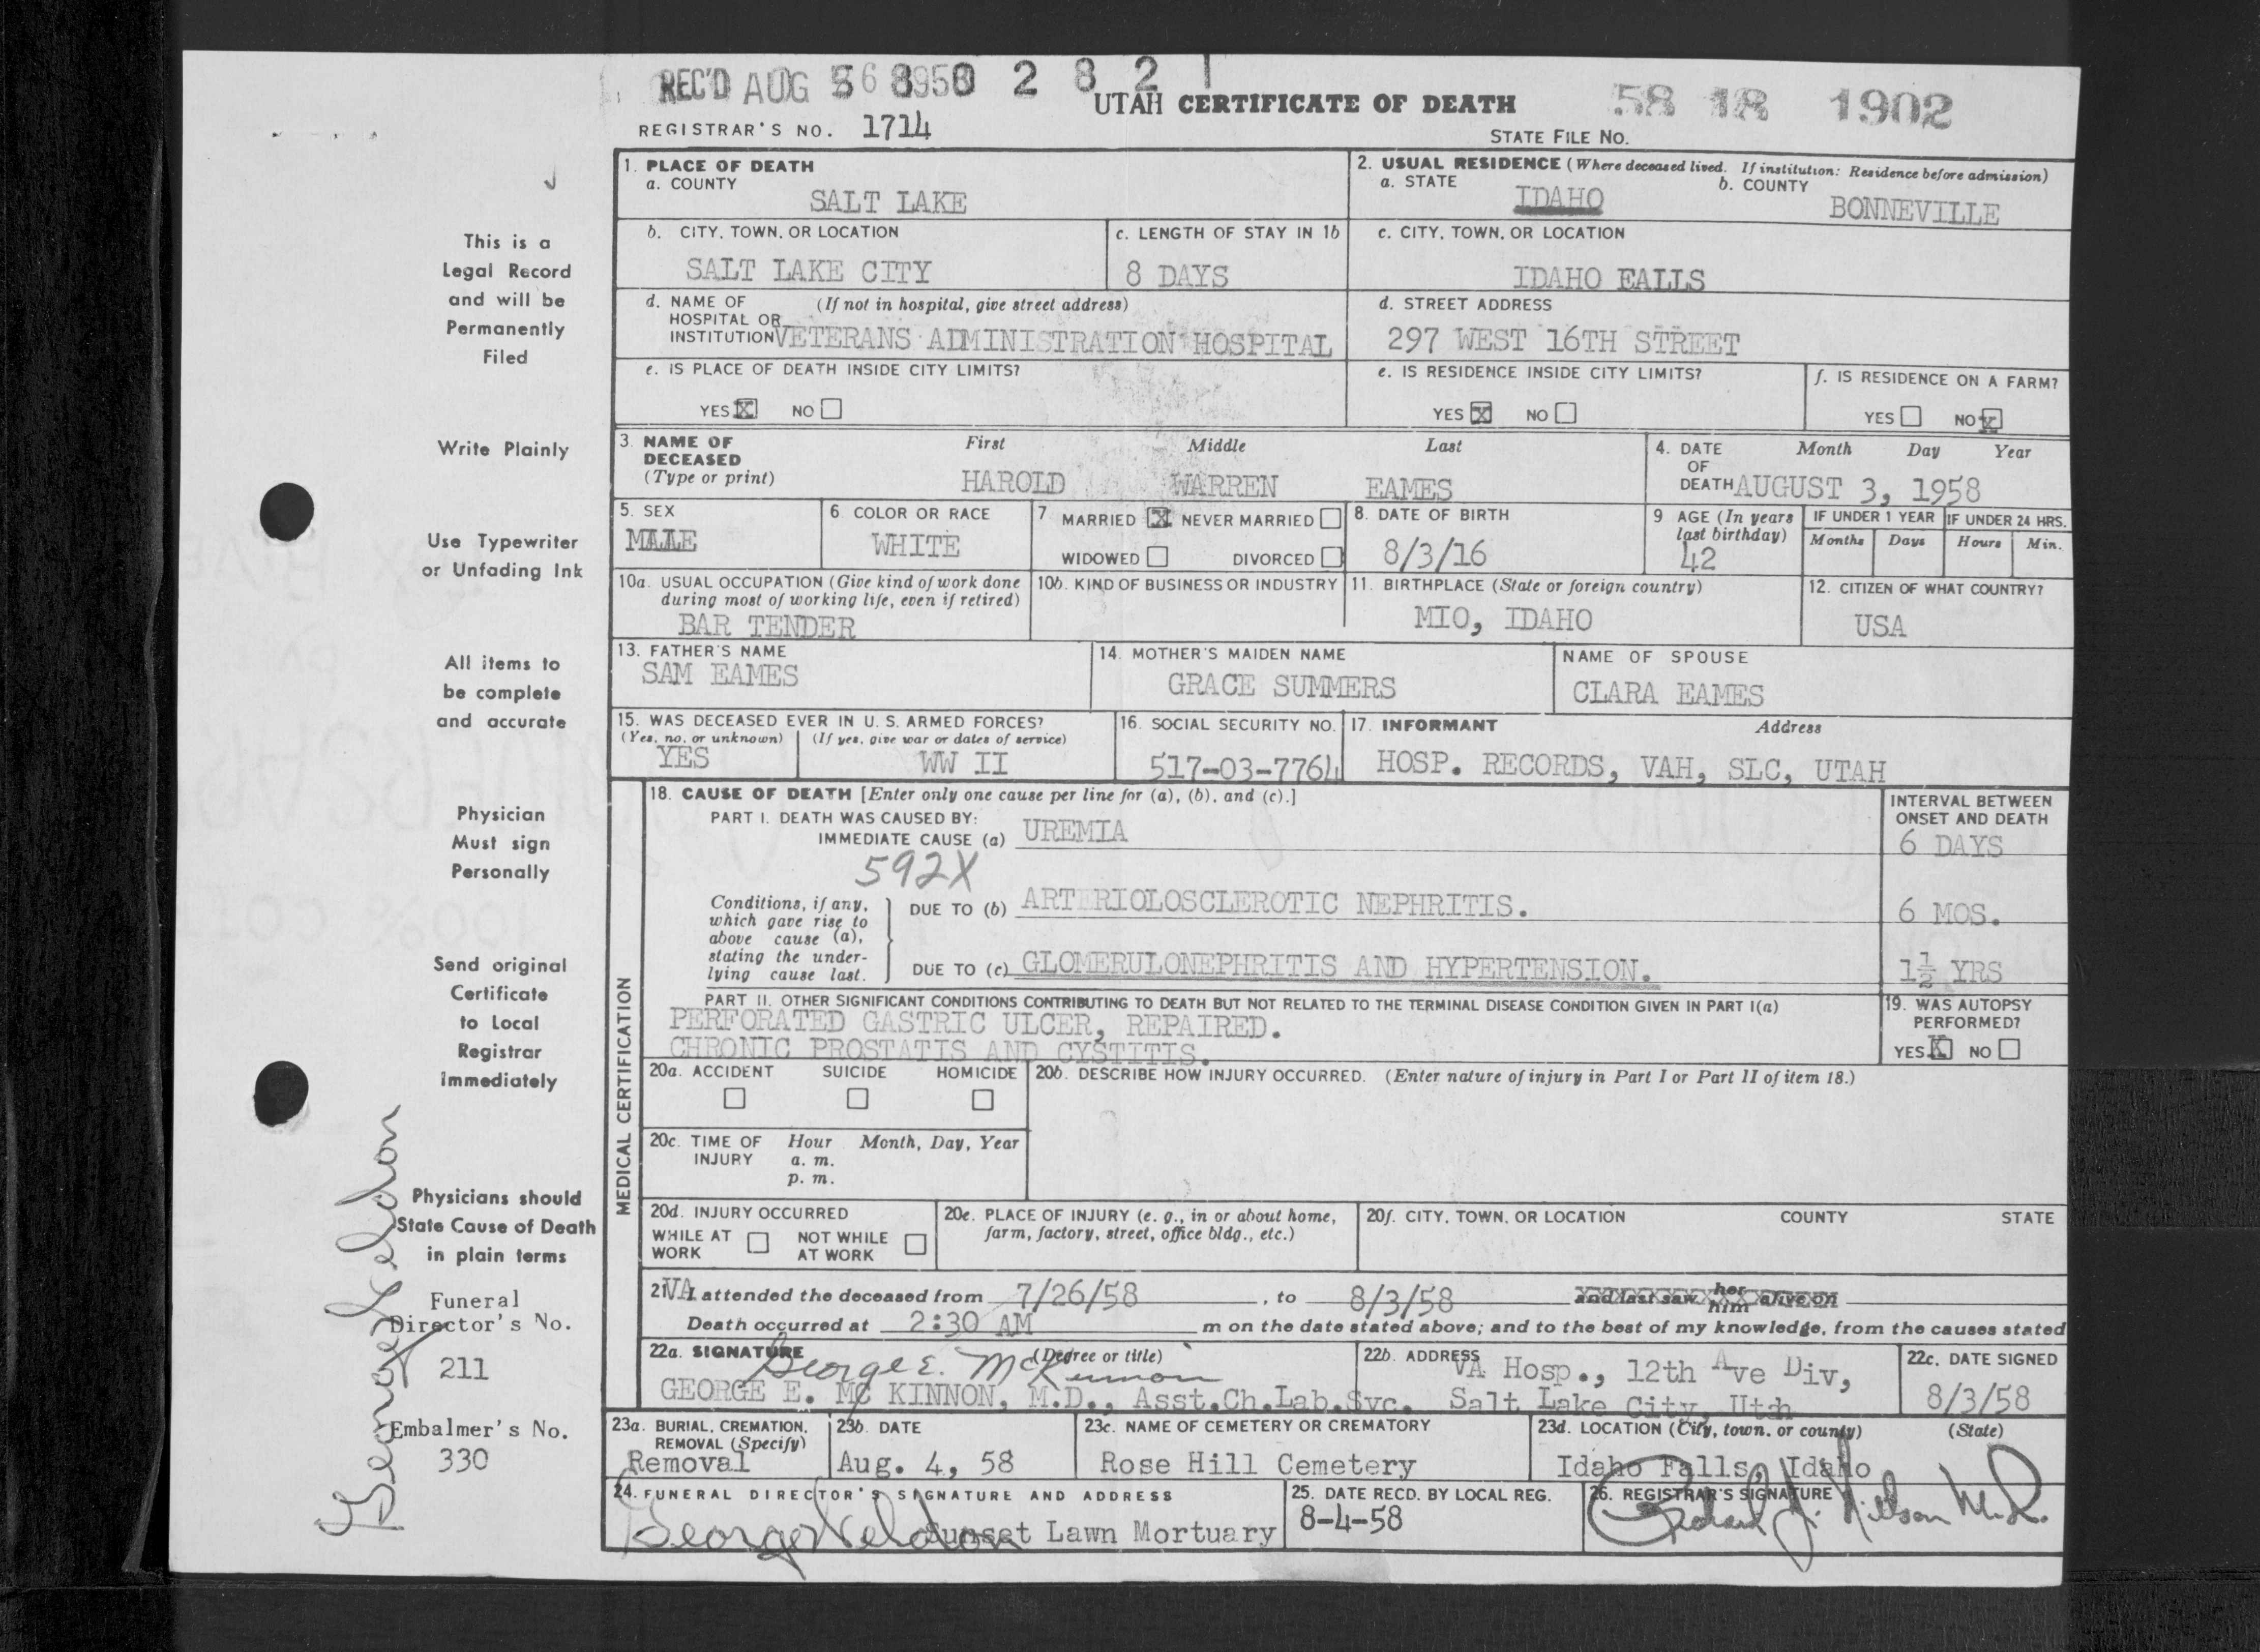 REC'D AUG 1958 2 8 2 1
UTAH CERTIFICATE OF DEATH
58 18 1902
REGISTRAR'S NO. 1714
STATE FILE NO.
This is a
Legal Record
and will be
Permanently
Filed
Write Plainly
Use Typewriter
or Unfading Ink
All items to
be complete
and accurate
Physician
Must sign
Personally
Send original
Certificate
to Local
Registrar
immediately
Physicians should
State Cause of Death
in plain terms
Funeral
Director's No.
211
Embalmer's No.
330
1. PLACE OF DEATH
a. COUNTY
SALT LAKE
2. USUAL RESIDENCE (Where deceased lived. If institution: Residence before admission)
a. STATE
IDAHO
b. COUNTY
BONNEVILLE
b. CITY, TOWN, OR LOCATION
SALT LAKE CITY
c. LENGTH OF STAY IN 1b
8 DAYS
c. CITY, TOWN, OR LOCATION
IDAHO FALLS
d. NAME OF (If not in hospital, give street address)
HOSPITAL OR
INSTITUTION VETERANS ADMINISTRATION HOSPITAL
d. STREET ADDRESS
297 WEST 16TH STREET
e. IS PLACE OF DEATH INSIDE CITY LIMITS?
YES X NO
e. IS RESIDENCE INSIDE CITY LIMITS?
YES X NO
f. IS RESIDENCE ON A FARM?
YES NO X
3. NAME OF First Middle Last
DECEASED
(Type or print) HAROLD WARREN EAMES
4. DATE Month Day Year
OF
DEATH AUGUST 3, 1958
5. SEX
MALE
6. COLOR OR RACE
WHITE
7 MARRIED X NEVER MARRIED
WIDOWED DIVORCED
8. DATE OF BIRTH
8/3/16
9 AGE (In years
last birthday)
42
IF UNDER 1 YEAR
Months Days
IF UNDER 24 HRS.
Hours Min.
10a. USUAL OCCUPATION (Give kind of work done
during most of working life, even if retired)
BAR TENDER
10b. KIND OF BUSINESS OR INDUSTRY
11. BIRTHPLACE (State or foreign country)
MIO, IDAHO
12. CITIZEN OF WHAT COUNTRY?
USA
13. FATHER'S NAME
SAM EAMES
14. MOTHER'S MAIDEN NAME
GRACE SUMMERS
NAME OF SPOUSE
CLARA EAMES
15. WAS DECEASED EVER IN U. S. ARMED FORCES?
(Yes, no, or unknown) (If yes, give war or dates of service)
YES WW II
16. SOCIAL SECURITY NO.
517-03-7764
17. INFORMANT Address
HOSP. RECORDS, VAH, SLC, UTAH
MEDICAL CERTIFICATION
18. CAUSE OF DEATH [Enter only one cause per line for (a), (b), and (c).]
PART I. DEATH WAS CAUSED BY:
IMMEDIATE CAUSE (a) UREMIA
INTERVAL BETWEEN
ONSET AND DEATH
6 DAYS
592X
Conditions, if any,
which gave rise to
above cause (a),
stating the under-
lying cause last.
DUE TO (b) ARTERIOLOSCLEROTIC NEPHRITIS.
6 MOS.
DUE TO (c) GLOMERULONEPHRITIS AND HYPERTENSION.
1½ YRS
PART II. OTHER SIGNIFICANT CONDITIONS CONTRIBUTING TO DEATH BUT NOT RELATED TO THE TERMINAL DISEASE CONDITION GIVEN IN PART I(a)
PERFORATED GASTRIC ULCER, REPAIRED.
CHRONIC PROSTATIS AND CYSTITIS.
19. WAS AUTOPSY
PERFORMED?
YES X NO
20a. ACCIDENT SUICIDE HOMICIDE
20b. DESCRIBE HOW INJURY OCCURRED. (Enter nature of injury in Part I or Part II of item 18.)
20c. TIME OF Hour Month, Day, Year
INJURY a. m.
p. m.
20d. INJURY OCCURRED
WHILE AT NOT WHILE
WORK AT WORK
20e. PLACE OF INJURY (e. g., in or about home,
farm, factory, street, office bldg., etc.)
20f. CITY, TOWN, OR LOCATION COUNTY STATE
21. VA attended the deceased from 7/26/58, to 8/3/58 and last saw her him alive on
Death occurred at 2:30 AM m on the date stated above; and to the best of my knowledge, from the causes stated
22a. SIGNATURE (Degree or title)
George E. McKinnon
GEORGE E. MC KINNON, M.D., Asst.Ch.Lab.Svc.
22b. ADDRESS
VA Hosp., 12th Ave Div,
Salt Lake City, Utah
22c. DATE SIGNED
8/3/58
23a. BURIAL, CREMATION,
REMOVAL (Specify)
Removal
23b. DATE
Aug. 4, 58
23c. NAME OF CEMETERY OR CREMATORY
Rose Hill Cemetery
23d. LOCATION (City, town, or county) (State)
Idaho Falls, Idaho
24. FUNERAL DIRECTOR'S SIGNATURE AND ADDRESS
George Neldon Sunset Lawn Mortuary
25. DATE RECD. BY LOCAL REG.
8-4-58
26. REGISTRAR'S SIGNATURE
George Neldon